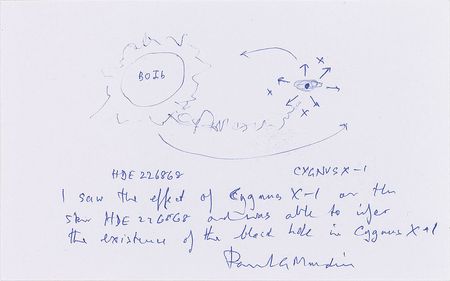 BOIb
x
x
x
x
HDE 226868
CYGNUS X-1
I saw the effect of Cygnus X-1 on the
star HDE 226868 and was able to infer
the existence of the black hole in Cygnus X-1
Paul G Murdin